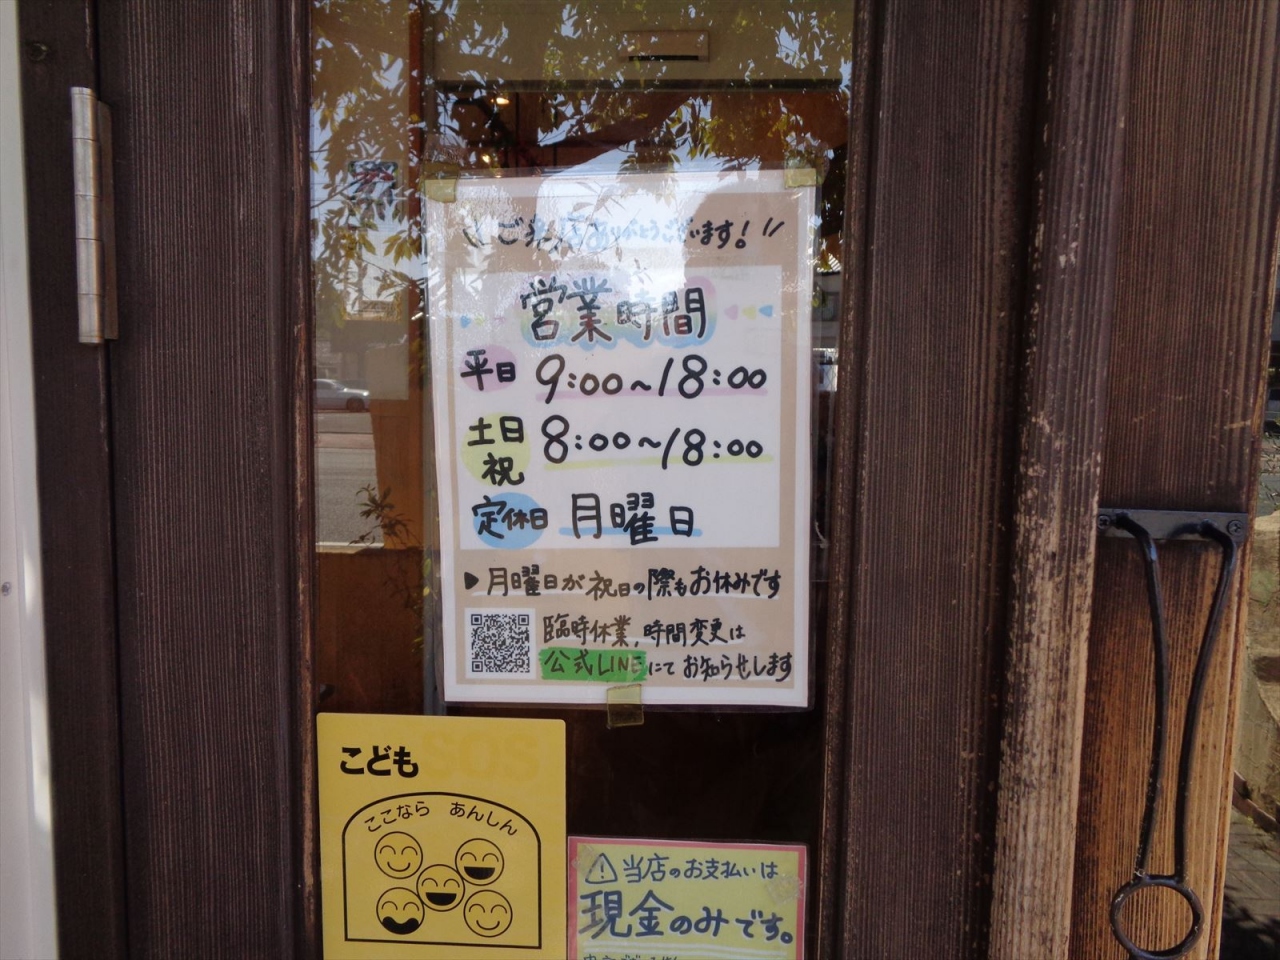 ご来店ありがとうございます!
営業時間
平日 9:00~18:00
土日祝 8:00~18:00
定休日 月曜日
▶月曜日が祝日の際もお休みです
臨時休業,時間変更は
公式LINEにてお知らせします
こどもSOS
ここなら あんしん
⚠当店のお支払いは
現金のみです。